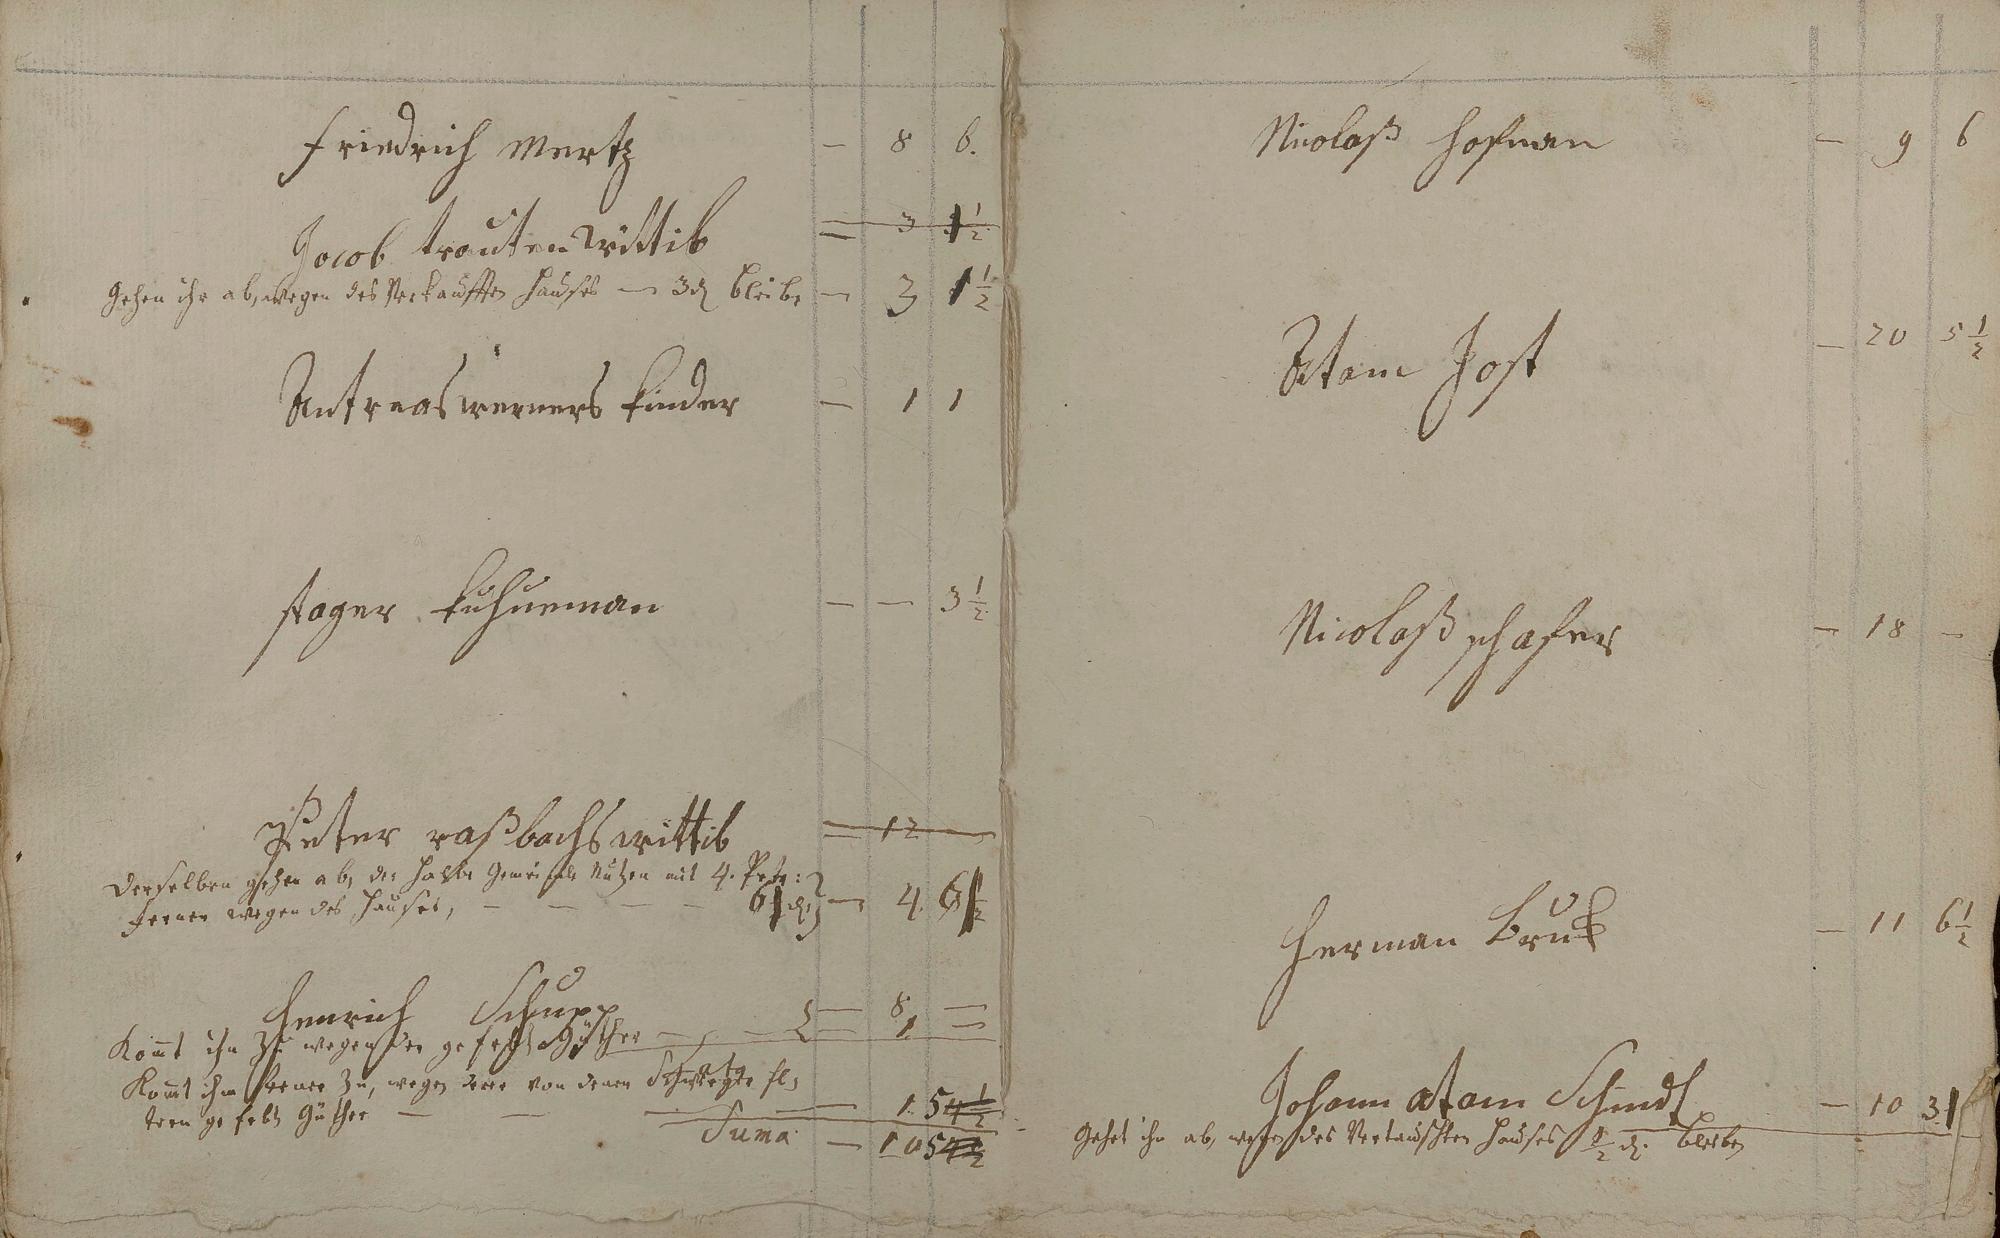 Friedrich Mertz — 8 6.
Jacob trauten Wittib — 3 1 1/2
Gehen ihr ab, wegen des Verkaufften Hauses — 3 d bleibe — 3 1 1/2
Antreas werners kinder — 1 1
kuhneman — — 3 1/2
Peter raßbachs wittib — 12 —
Derselben gehen ab, der halbe Gemeinds Nutzen mit 4.
ferner wegen des Hauses, — — — — 6 d. — 4. 6 1/2
Henrich Schupp — 8 —
Kom̄t ihm Zu wegen der gefelh Güther — — 1 —
Kom̄t ihm ferner Zu, wegen derer von denen
tern gefelh Güther — — — 1. 5
Suma — 10 5
Nicolaß hofman — 9 6
Atam Jost — 20 5 1/2
Nicolaß schafer — 18 —
Herman Bruk — 11 6 1/2
Johann atam Schmdt — 10 3.
Gehet ihm ab, wegen des Vertauschten Hauses 1/2 d. bleiben